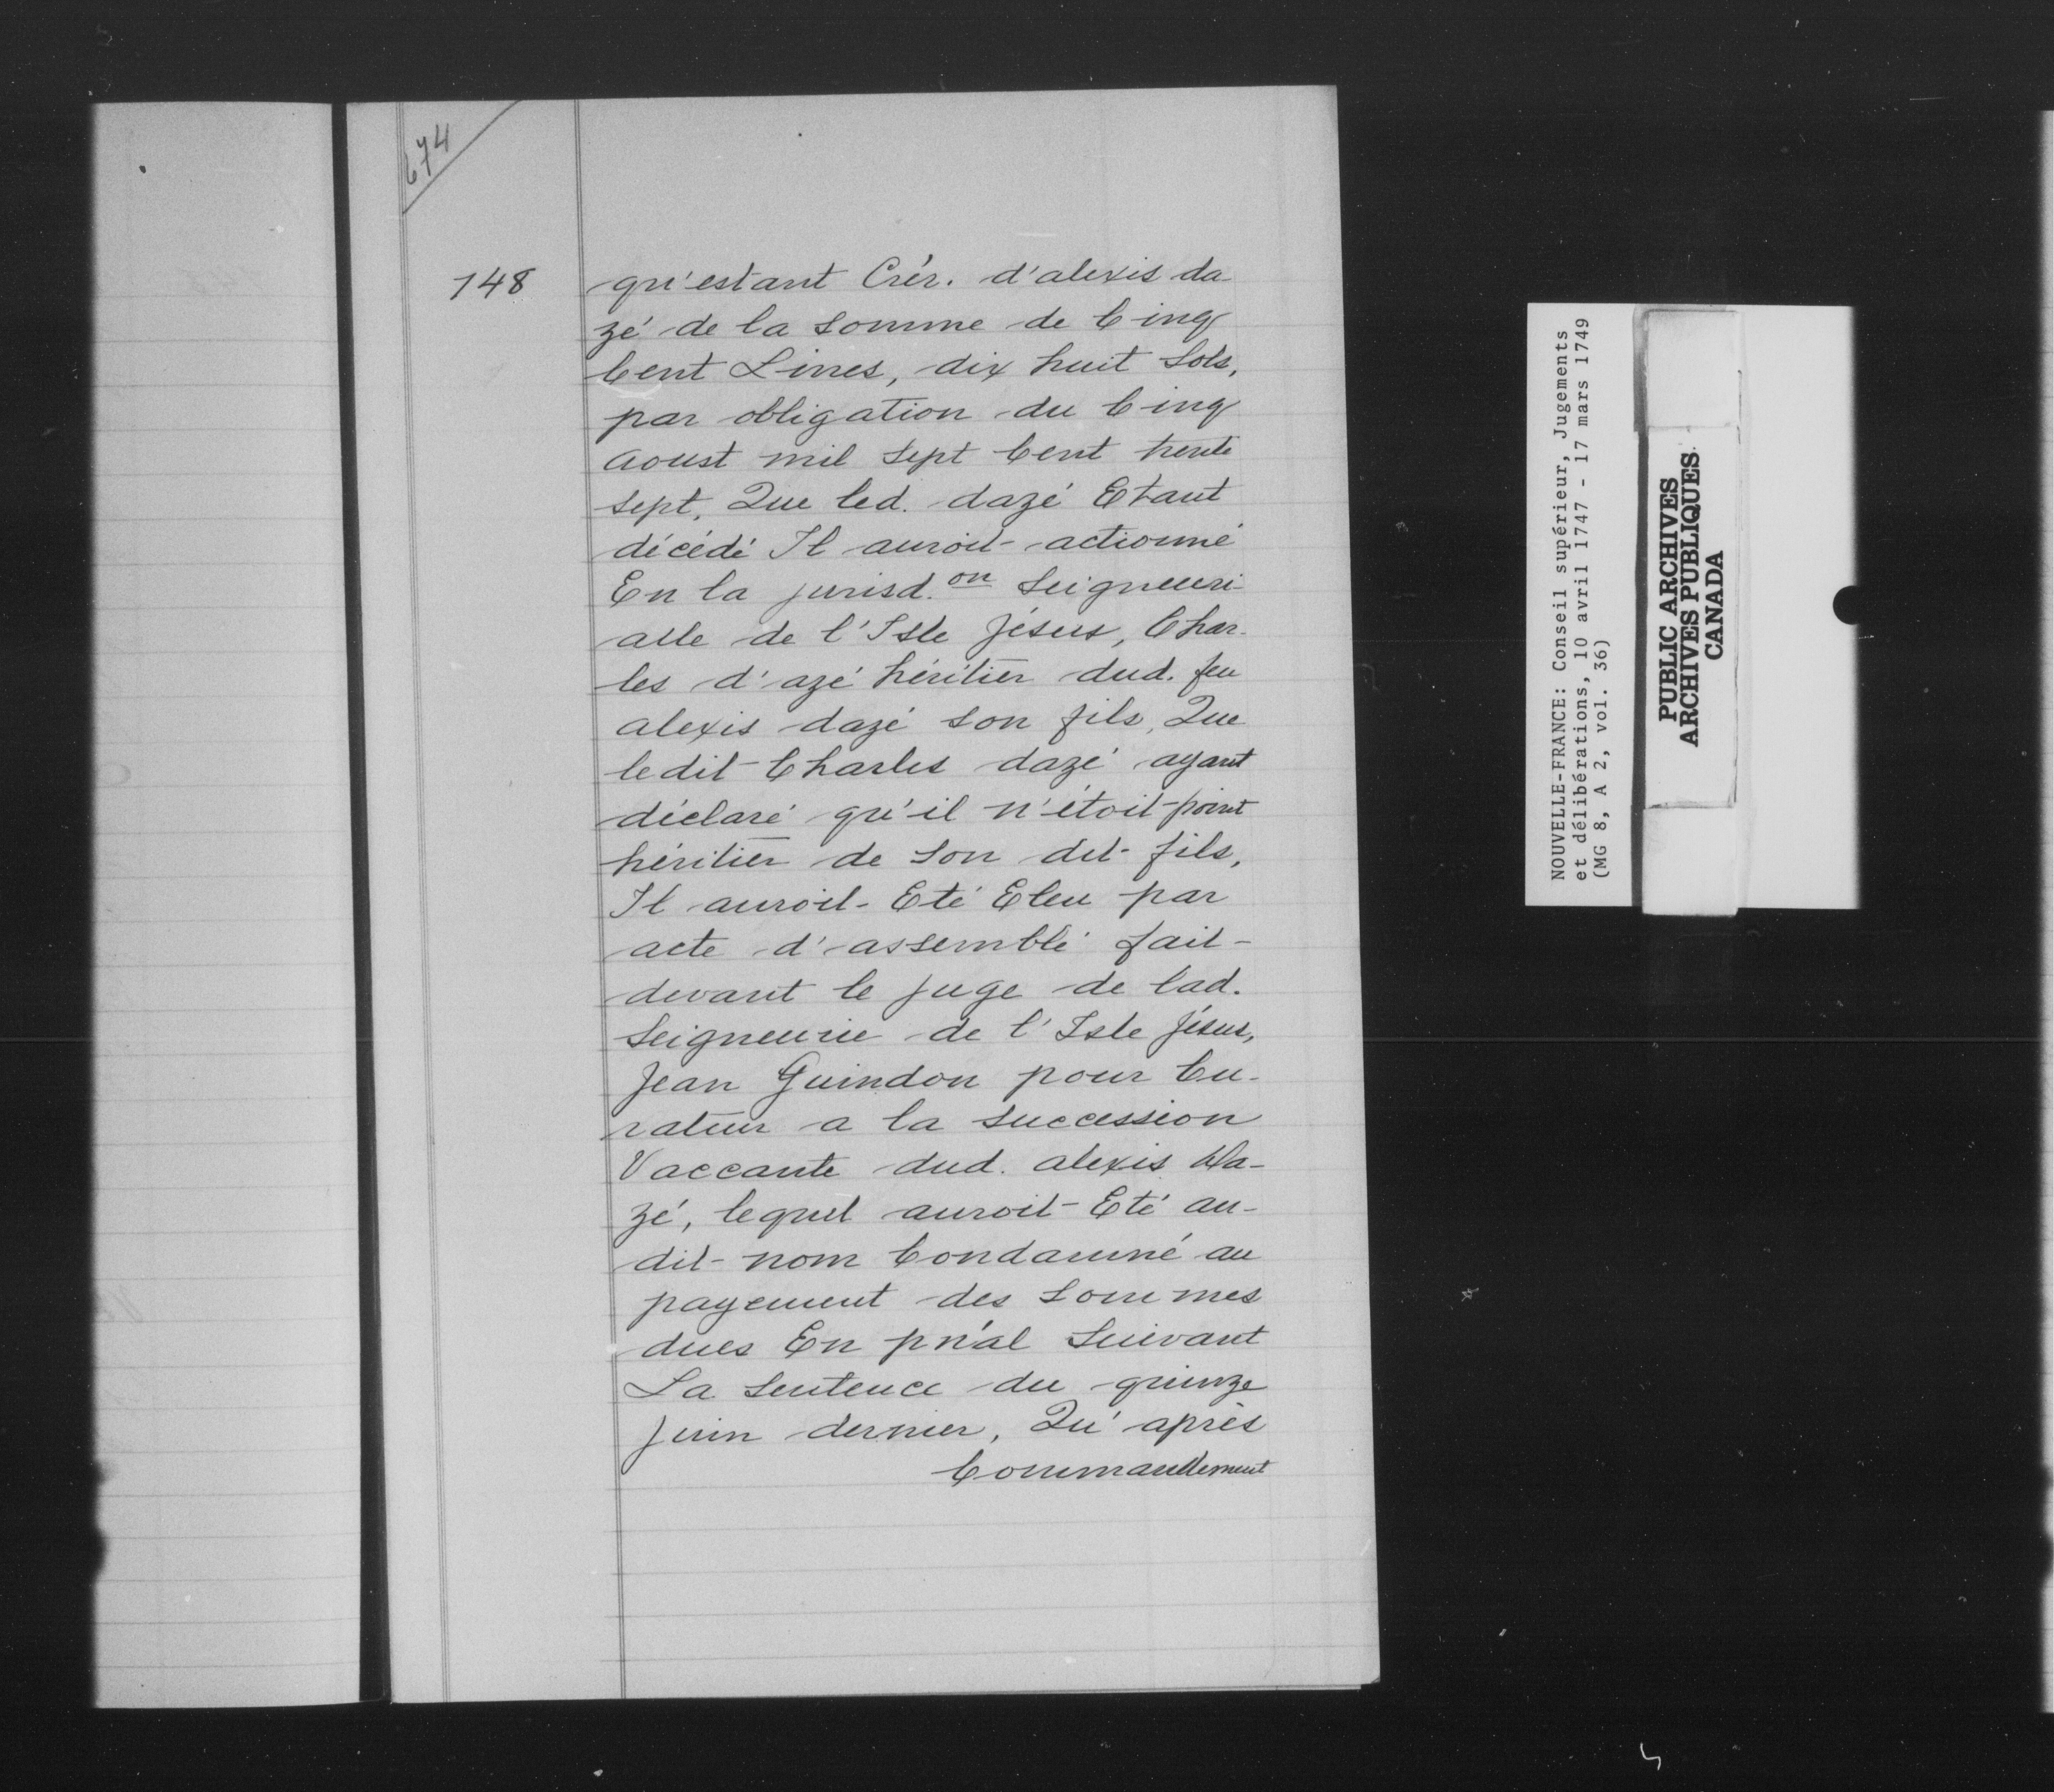 674
148
qu'estant Crér. d'alexis da-
zé de la Somme de Cinq
Cent Livres, dix huit Sols,
par obligation du Cinq
Aoust mil Sept Cent trente
Sept, Que led. dazé Etant
décédé Il auroit actionné
En la jurisd.on Seigneuri-
alle de l'Isle Jésus, Char-
les d'azé héritier dud. feu
alexis dazé Son fils, Que
ledit Charles dazé ayant
déclaré qu'il n'étoit point
héritier de Son dit fils,
Il auroit Eté Eleu par
acte d'assemblé fait
devant le juge de lad.
Seigneurie de l'Isle Jésus,
Jean Guindon pour Cu-
rateur a la Succession
Vaccante dud. alexis Da-
zé, lequel auroit Eté au-
dit nom Condamné au
payement des Sommes
dues En pn'al Suivant
La Sentence du quinze
Juin dernier, Qu'après
Commandement
NOUVELLE-FRANCE: Conseil supérieur, Jugements
et délibérations, 10 avril 1747 - 17 mars 1749
(MG 8, A 2, vol. 36)
PUBLIC ARCHIVES
ARCHIVES PUBLIQUES
CANADA